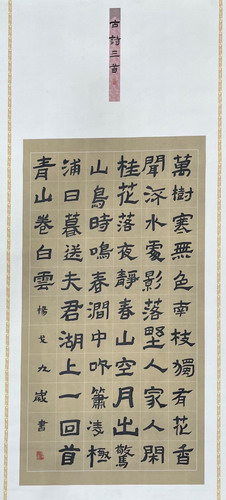 古詩三首
萬樹寒無色南枝獨有花香
聞流水處影落野人家人閒
桂花落夜靜春山空月出驚
山鳥時鳴春澗中吹簫凌極
浦日暮送夫君湖上一回首
青山卷白雲 楊 九歲書